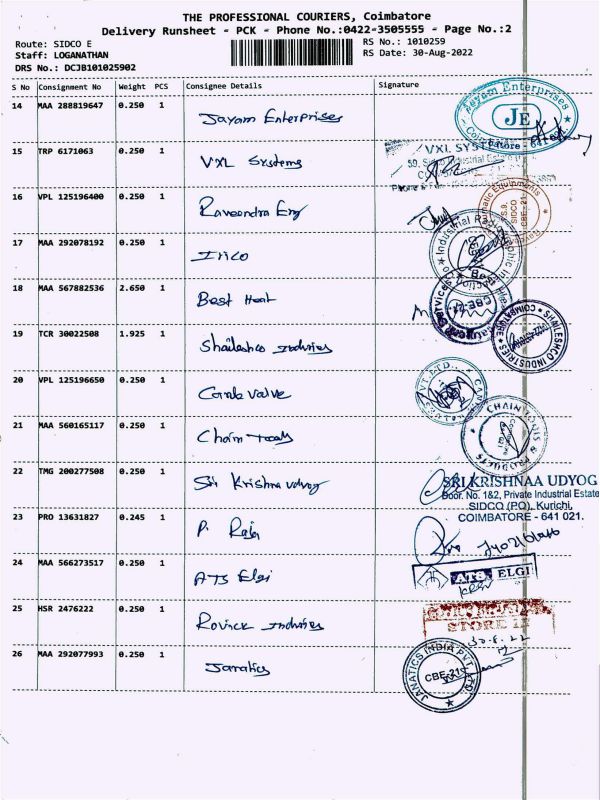 THE PROFESSIONAL COURIERS, Coimbatore
Delivery Runsheet - PCK - Phone No.:0422-3505555 - Page No.:2
Route: SIDCO E
RS No.: 1010259
Staff: LOGANATHAN
RS Date: 30-Aug-2022
DRS No.: DCJB101025902
S No Consignment No Weight PCS Consignee Details Signature
14 MAA 288819647 0.250 1 Jayam Enterprises
Jayam Enterprises
JE
15 TRP 6171063 0.250 1 VXL Systems
VXL SYSTEMS
16 VPL 125196400 0.250 1 Raveendra Eng
SIDCO
CBE-21
17 MAA 292078192 0.250 1 Irico
18 MAA 567882536 2.650 1 Best Heat
Best Heat
19 TCR 30022508 1.925 1 Shaileshco Industries
SHAILESHCO INDUSTRIES
COIMBATORE
20 VPL 125196650 0.250 1 Carb Valve
21 MAA 560165117 0.250 1 Chain Tools
CHAIN TOOLS & PRODUCTS
22 TMG 200277508 0.250 1 Sri Krishna udyog
SRI KRISHNAA UDYOG
Door. No. 1&2, Private Industrial Estate
SIDCO (PO), Kurichi,
COIMBATORE - 641 021.
23 PRO 13631827 0.245 1 P. Raja
24 MAA 566273517 0.250 1 ATS Elgi
ATS ELGI
25 HSR 2476222 0.250 1 Industries
STORE
30.8.22
26 MAA 292077993 0.250 1 Janatics
JANATICS INDIA PVT LTD
CBE-21